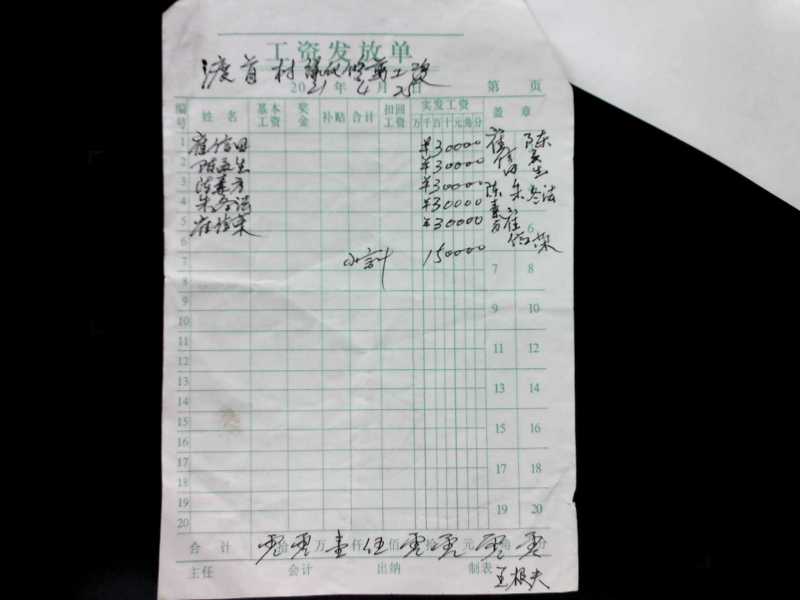 工资发放单
渡首村 工资
2021年4月25日 第 页
编号 姓名 基本工资 奖金 补贴 合计 扣回工资 实发工资 盖章
万千百十元角分
1 崔信田 ¥30000 崔信田 陈
2 生 ¥30000 生
3 陈 方 ¥30000 陈 方
4 朱冬法 ¥30000 朱冬法
5 崔信荣 ¥30000 崔信荣
6 6
7 小计 150000 7 8
8
9 9 10
10
11 11 12
12
13 13 14
14
15 15 16
16
17 17 18
18
19 19 20
20
合计 零拾零万壹仟伍佰零拾零元零角零分
主任 会计 出纳 制表 王根夫